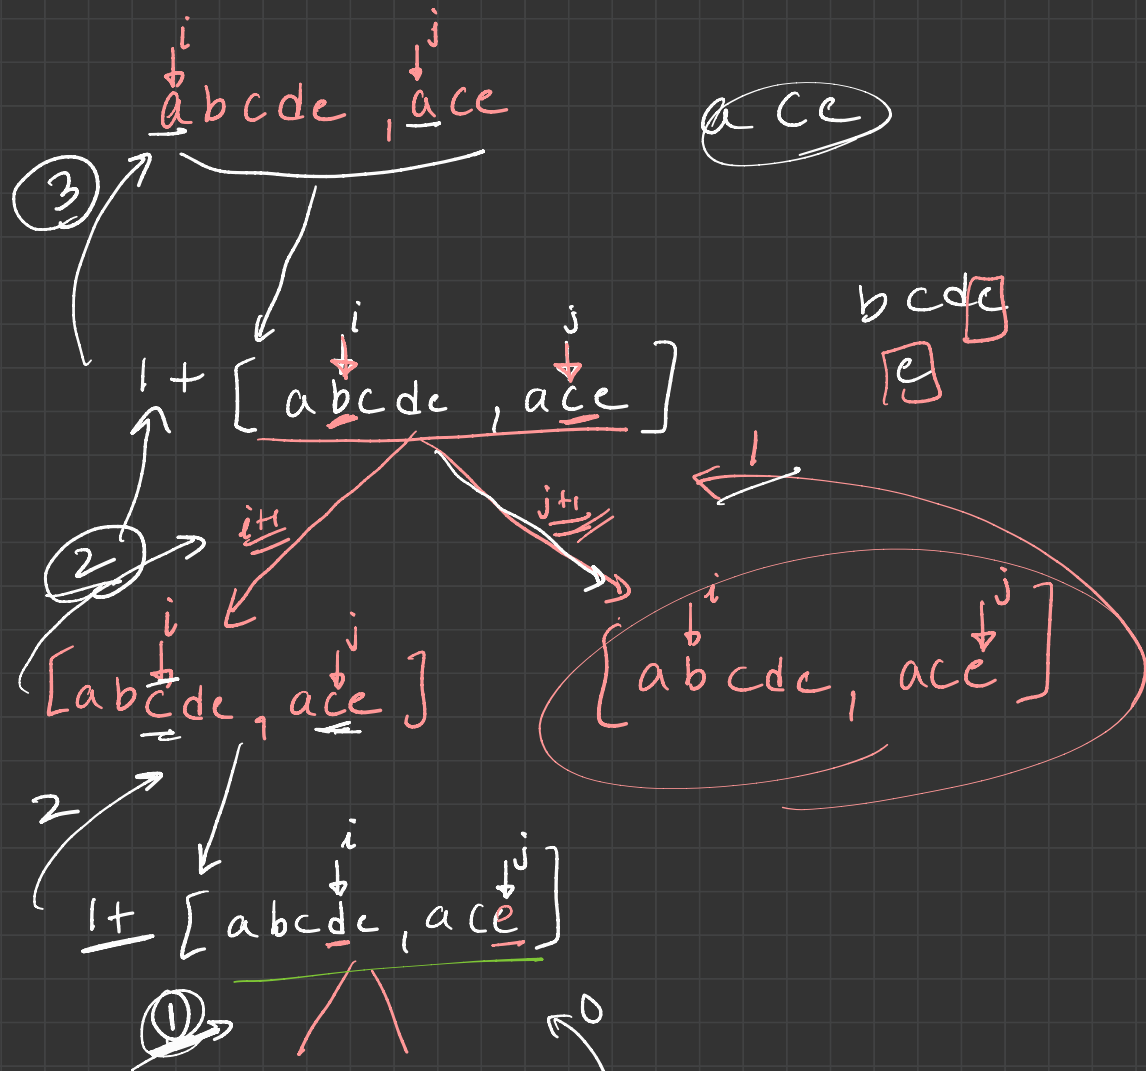 i j
abcde , ace
ace
3
bcde
e
i j
1 + [ abcde , ace ]
1
i+1 j+1
2
i j
[ abcde , ace ]
i j
[ abcde , ace ]
2
i j
1+ [ abcde , ace ]
1
0